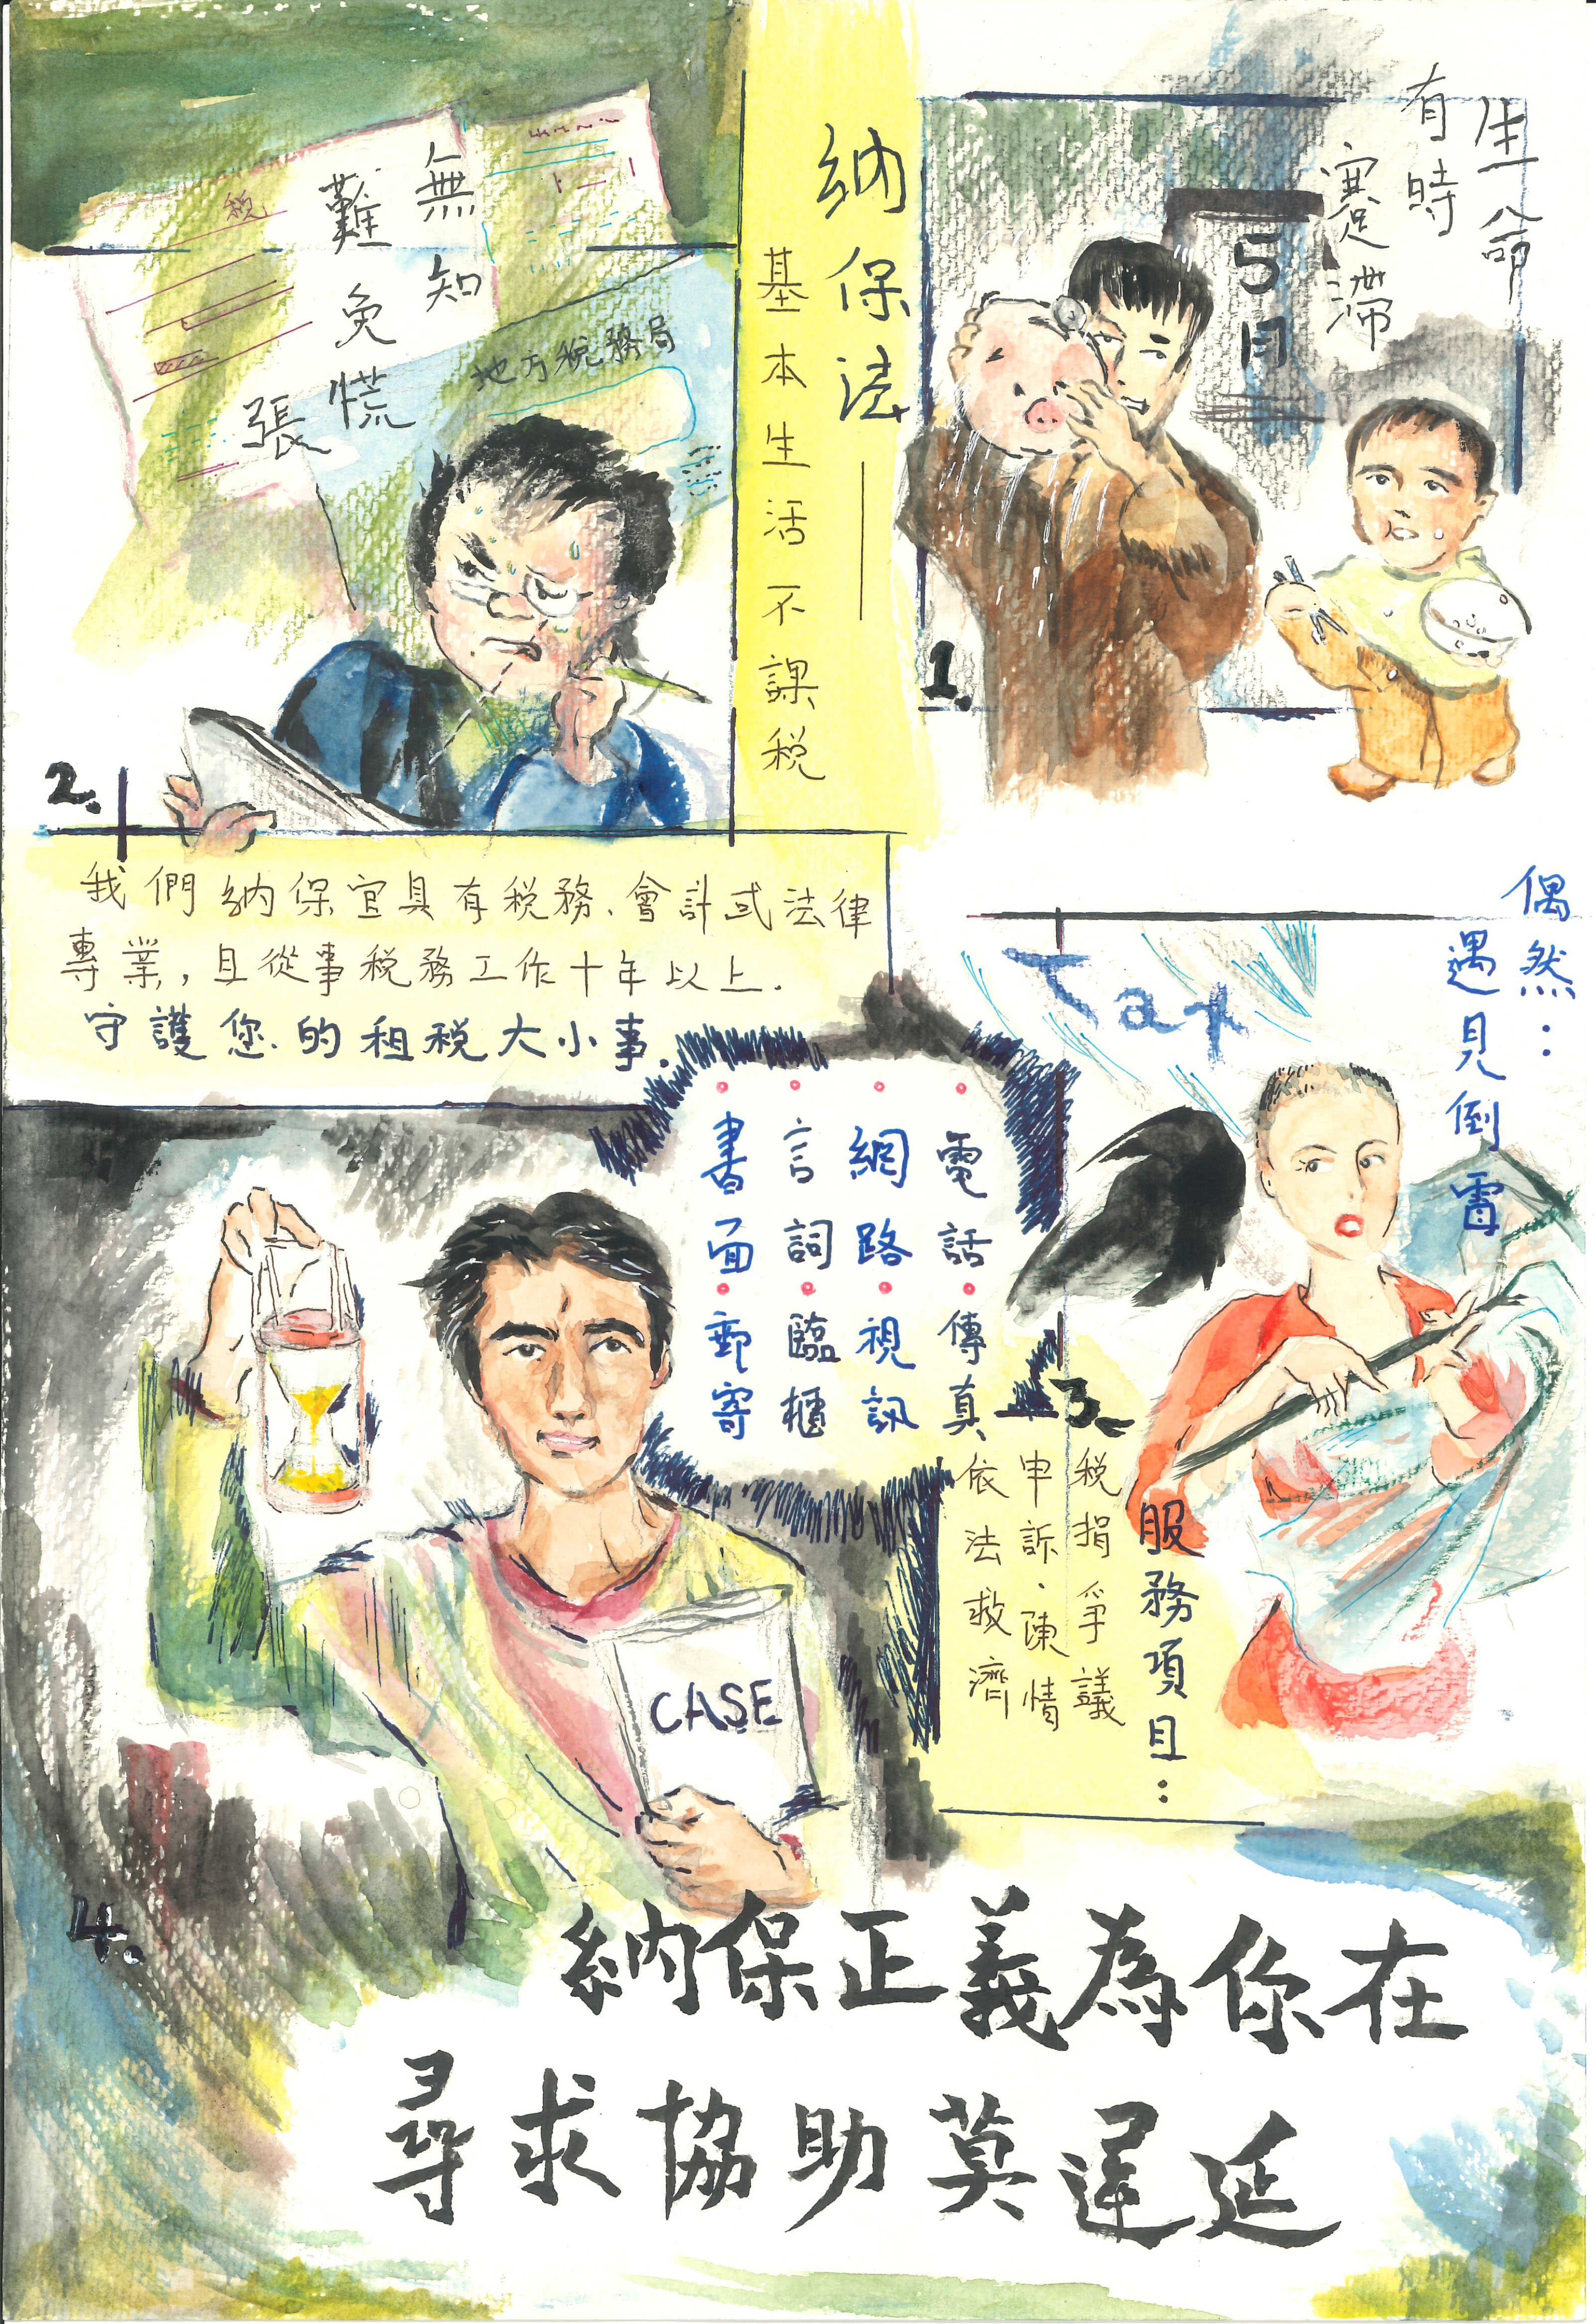 生命
有時
蹇滯
5月
1.
納保法——
基本生活不課稅
無知
難免慌
張
稅
地方稅務局
2.
我們納保官具有稅務、會計或法律
專業，且從事稅務工作十年以上.
守護您的租稅大小事.
偶然：
遇見倒霉
Tax
3.
服務項目：
稅捐爭議
申訴·陳情
依法救濟
•電話•傳真
•網路視訊
•言詞•臨櫃
•書面•郵寄
CASE
4.
納保正義為你在
尋求協助莫遲延